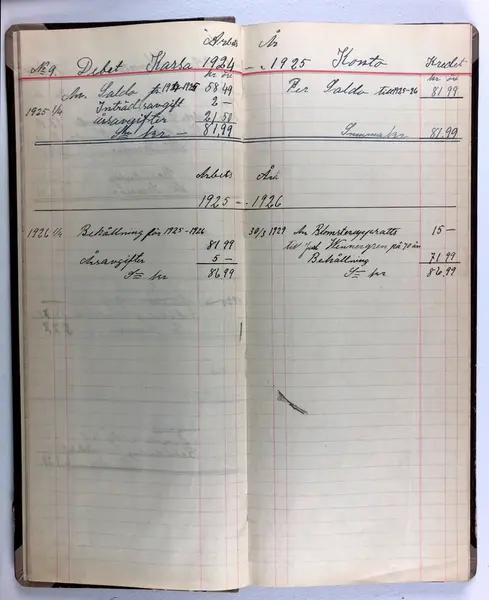 Arbets År
No 9. Debet Kassa 1924 - 1925 Konto Kredit
kr öre kr öre
An Saldo fr 1924-1925 58 49 Per Saldo till 1925-26 81 99
1925 1/4 Inträdesavgift 2 —
Årsavgifter 21 50
S:a kr — 81.99 Summa kr 81.99
Arbets År
1925 - 1926
1926 1/4 Behållning för 1925-1926 30/3 1929 An Blomsteruppsatts 15 —
81 99 till Joh Wennergren på 70 år
Årsavgifter 5 — Behållning 71 99
S:a kr 86.99 S:a kr 86,99